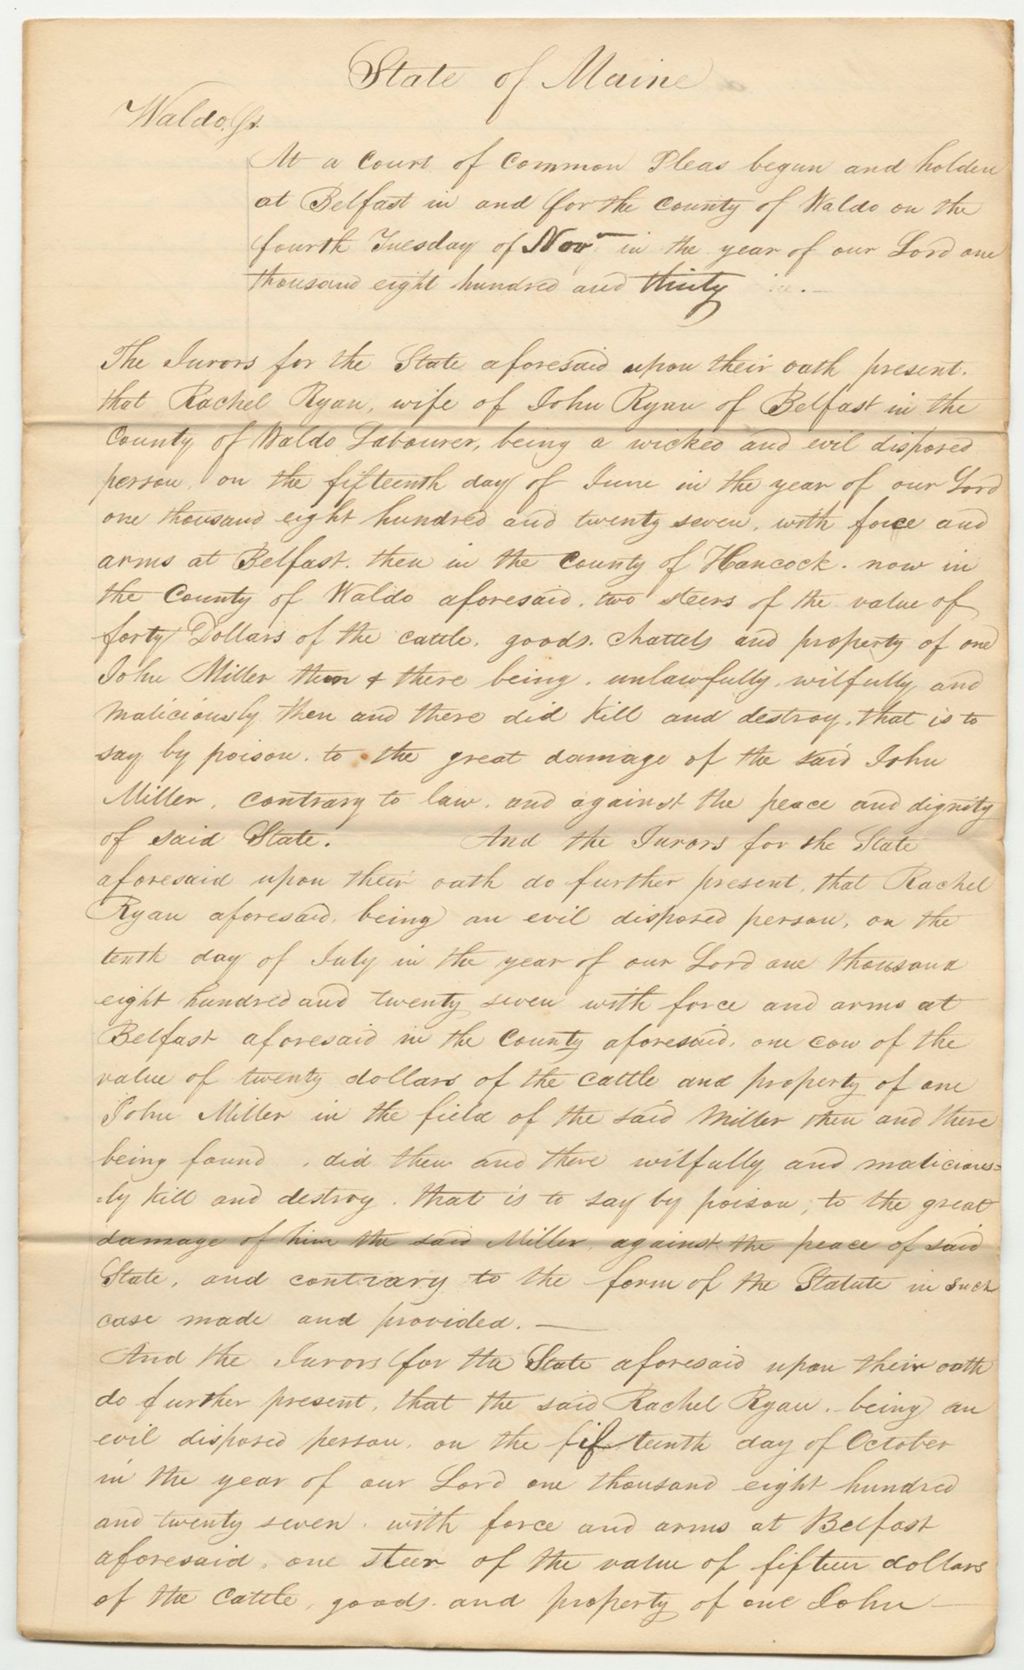 State of Maine
Waldo, Ss.
At a Court of Common Pleas begun and holden
at Belfast in and for the county of Waldo on the
fourth Tuesday of Nov in the year of our Lord one
thousand eight hundred and thirty
The Jurors for the State aforesaid upon their oath present.
that Rachel Ryan, wife of John Ryan of Belfast in the
County of Waldo Labourer, being a wicked and evil disposed
person, on the fifteenth day of June in the year of our Lord
one thousand eight hundred and twenty seven, with force and
arms at Belfast, then in the County of Hancock. now in
the County of Waldo aforesaid, two steers of the value of
forty Dollars of the cattle, goods. chattels and property of one
John Miller then & there being, unlawfully, wilfully and
maliciously then and there did kill and destroy, that is to
say by poison, to the great damage of the said John
Miller, contrary to law, and against the peace and dignity
of said State. And the Jurors for the State
aforesaid upon their oath do further present, that Rachel
Ryan aforesaid, being an evil disposed person, on the
tenth day of July in the year of our Lord one thousand
eight hundred and twenty seven with force and arms at
Belfast aforesaid in the County aforesaid, one cow of the
value of twenty dollars of the cattle and property of one
John Miller in the field of the said Miller then and there
being found, did then and there wilfully and malicious=
=ly kill and destroy, that is to say by poison, to the great
damage of him the said Miller, against the peace of said
State, and contrary to the form of the Statute in such
case made and provided. —
And the Jurors for the State aforesaid upon their oath
do further present, that the said Rachel Ryan, being an
evil disposed person, on the fifteenth day of October
in the year of our Lord one thousand eight hundred
and twenty seven, with force and arms at Belfast
aforesaid, one steer of the value of fifteen dollars
of the cattle, goods and property of one John